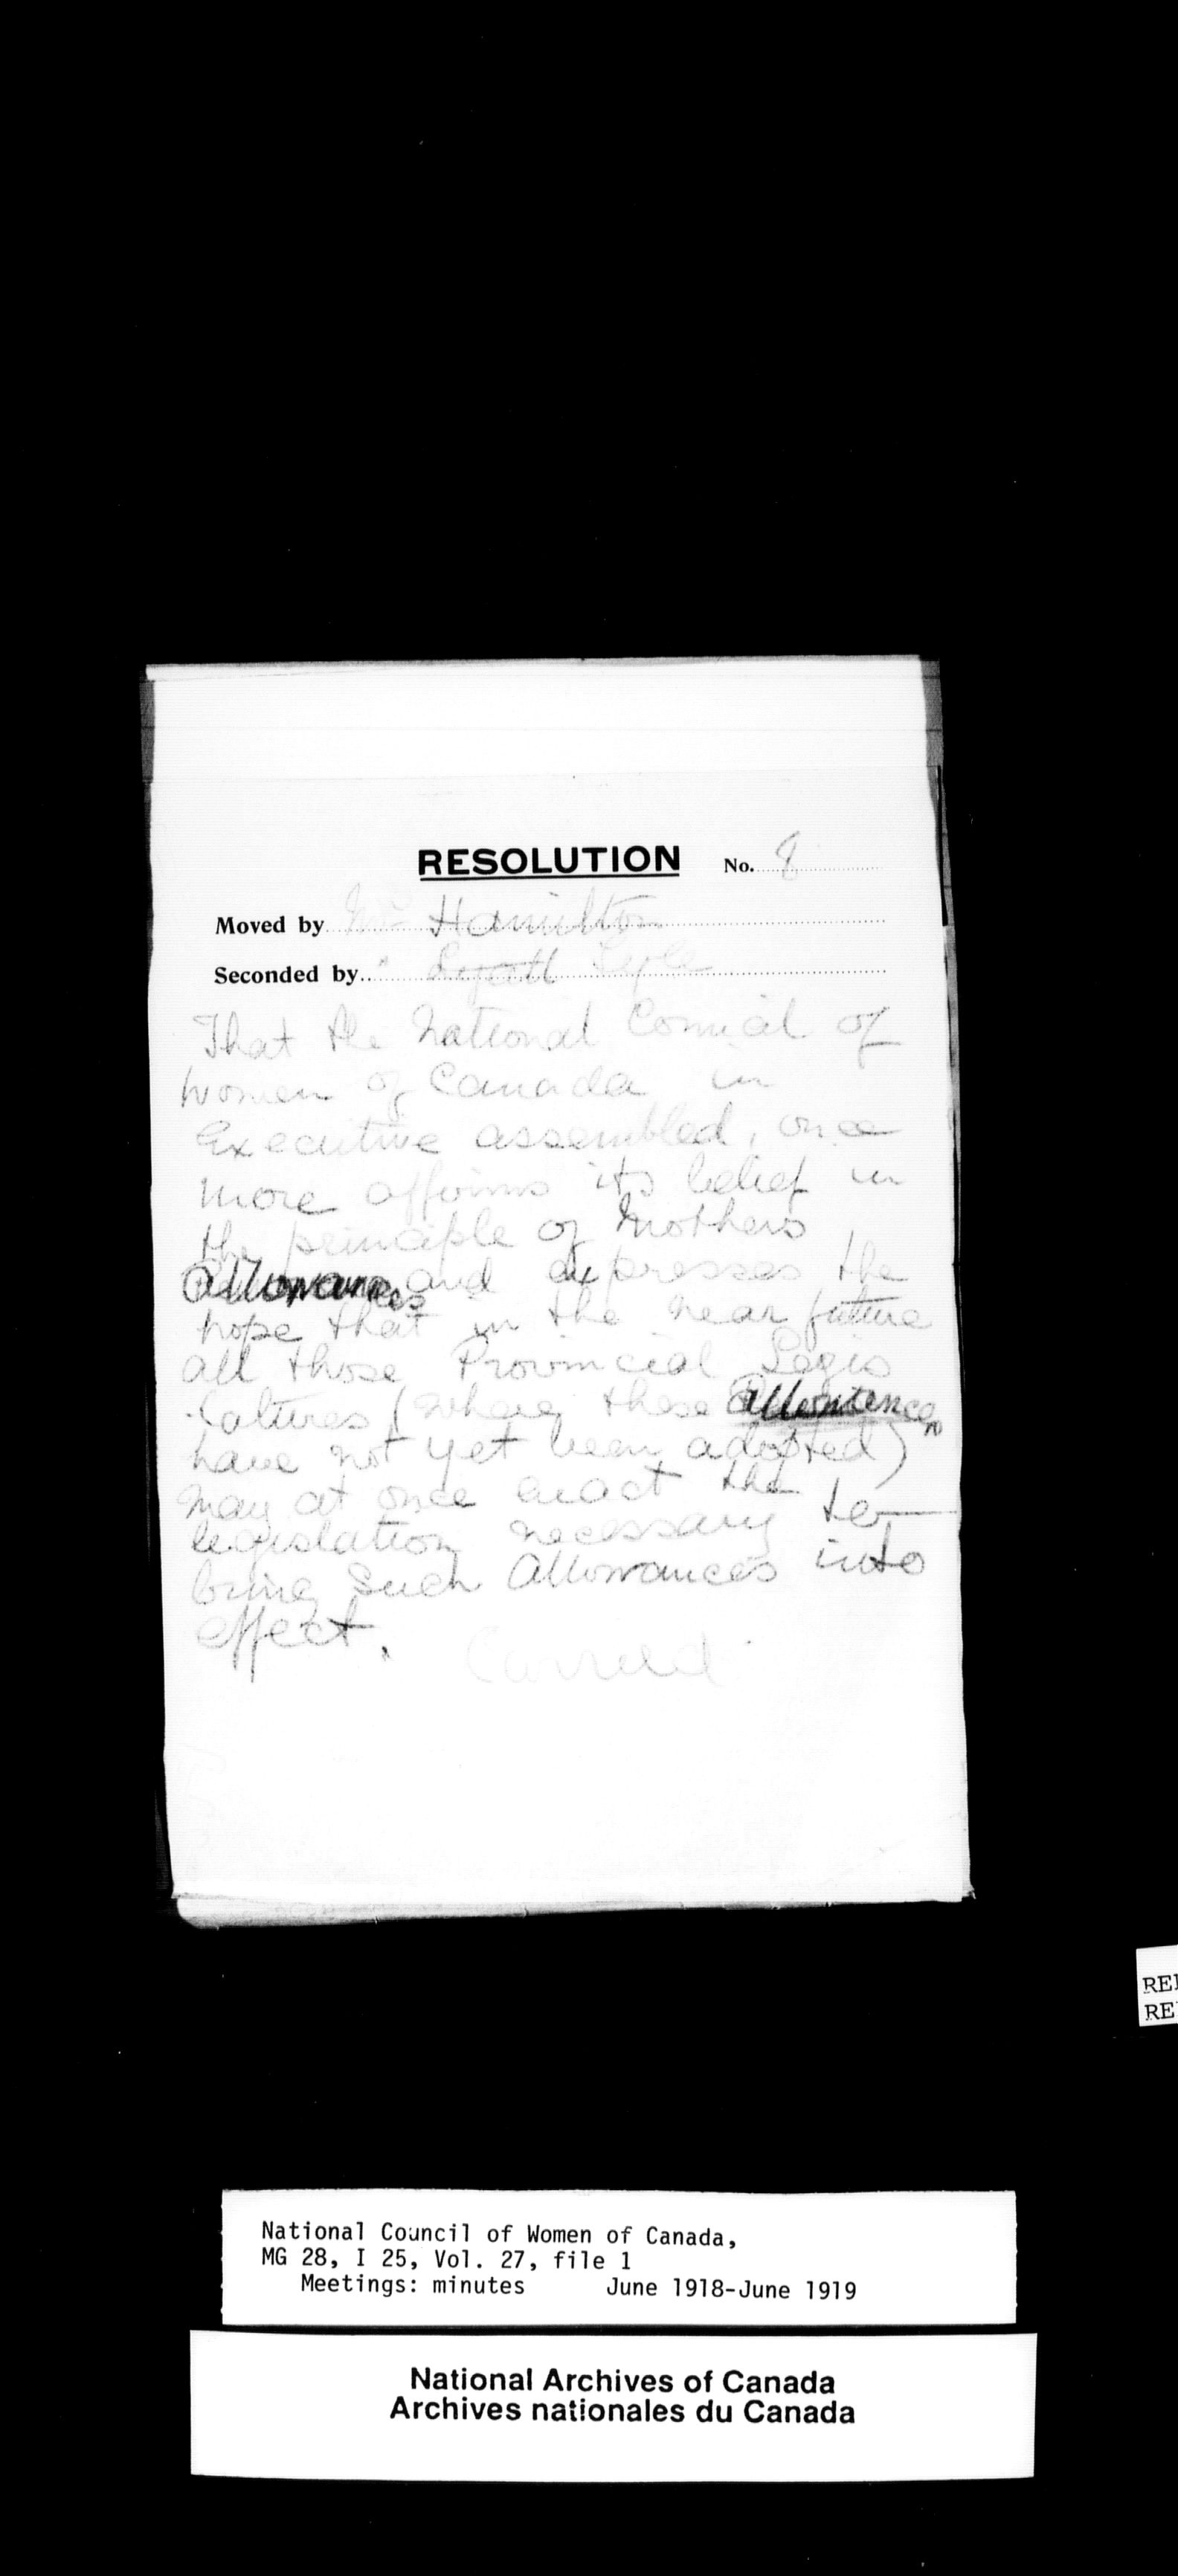 RESOLUTION No. 8
Moved by Mrs Hamilton
Seconded by "
That the National Council of
Women of Canada in
Executive assembled, once
more affirms its belief in
the principle of Mothers
Allowances and expresses the
hope that in the near future
all those Provincial Legis
-latures (where these Allowances
have not yet been adopted)
may at once enact the
legislation necessary to
bring such Allowances into
effect.
Carried
RE
RE
National Council of Women of Canada,
MG 28, I 25, Vol. 27, file 1
Meetings: minutes June 1918-June 1919
National Archives of Canada
Archives nationales du Canada